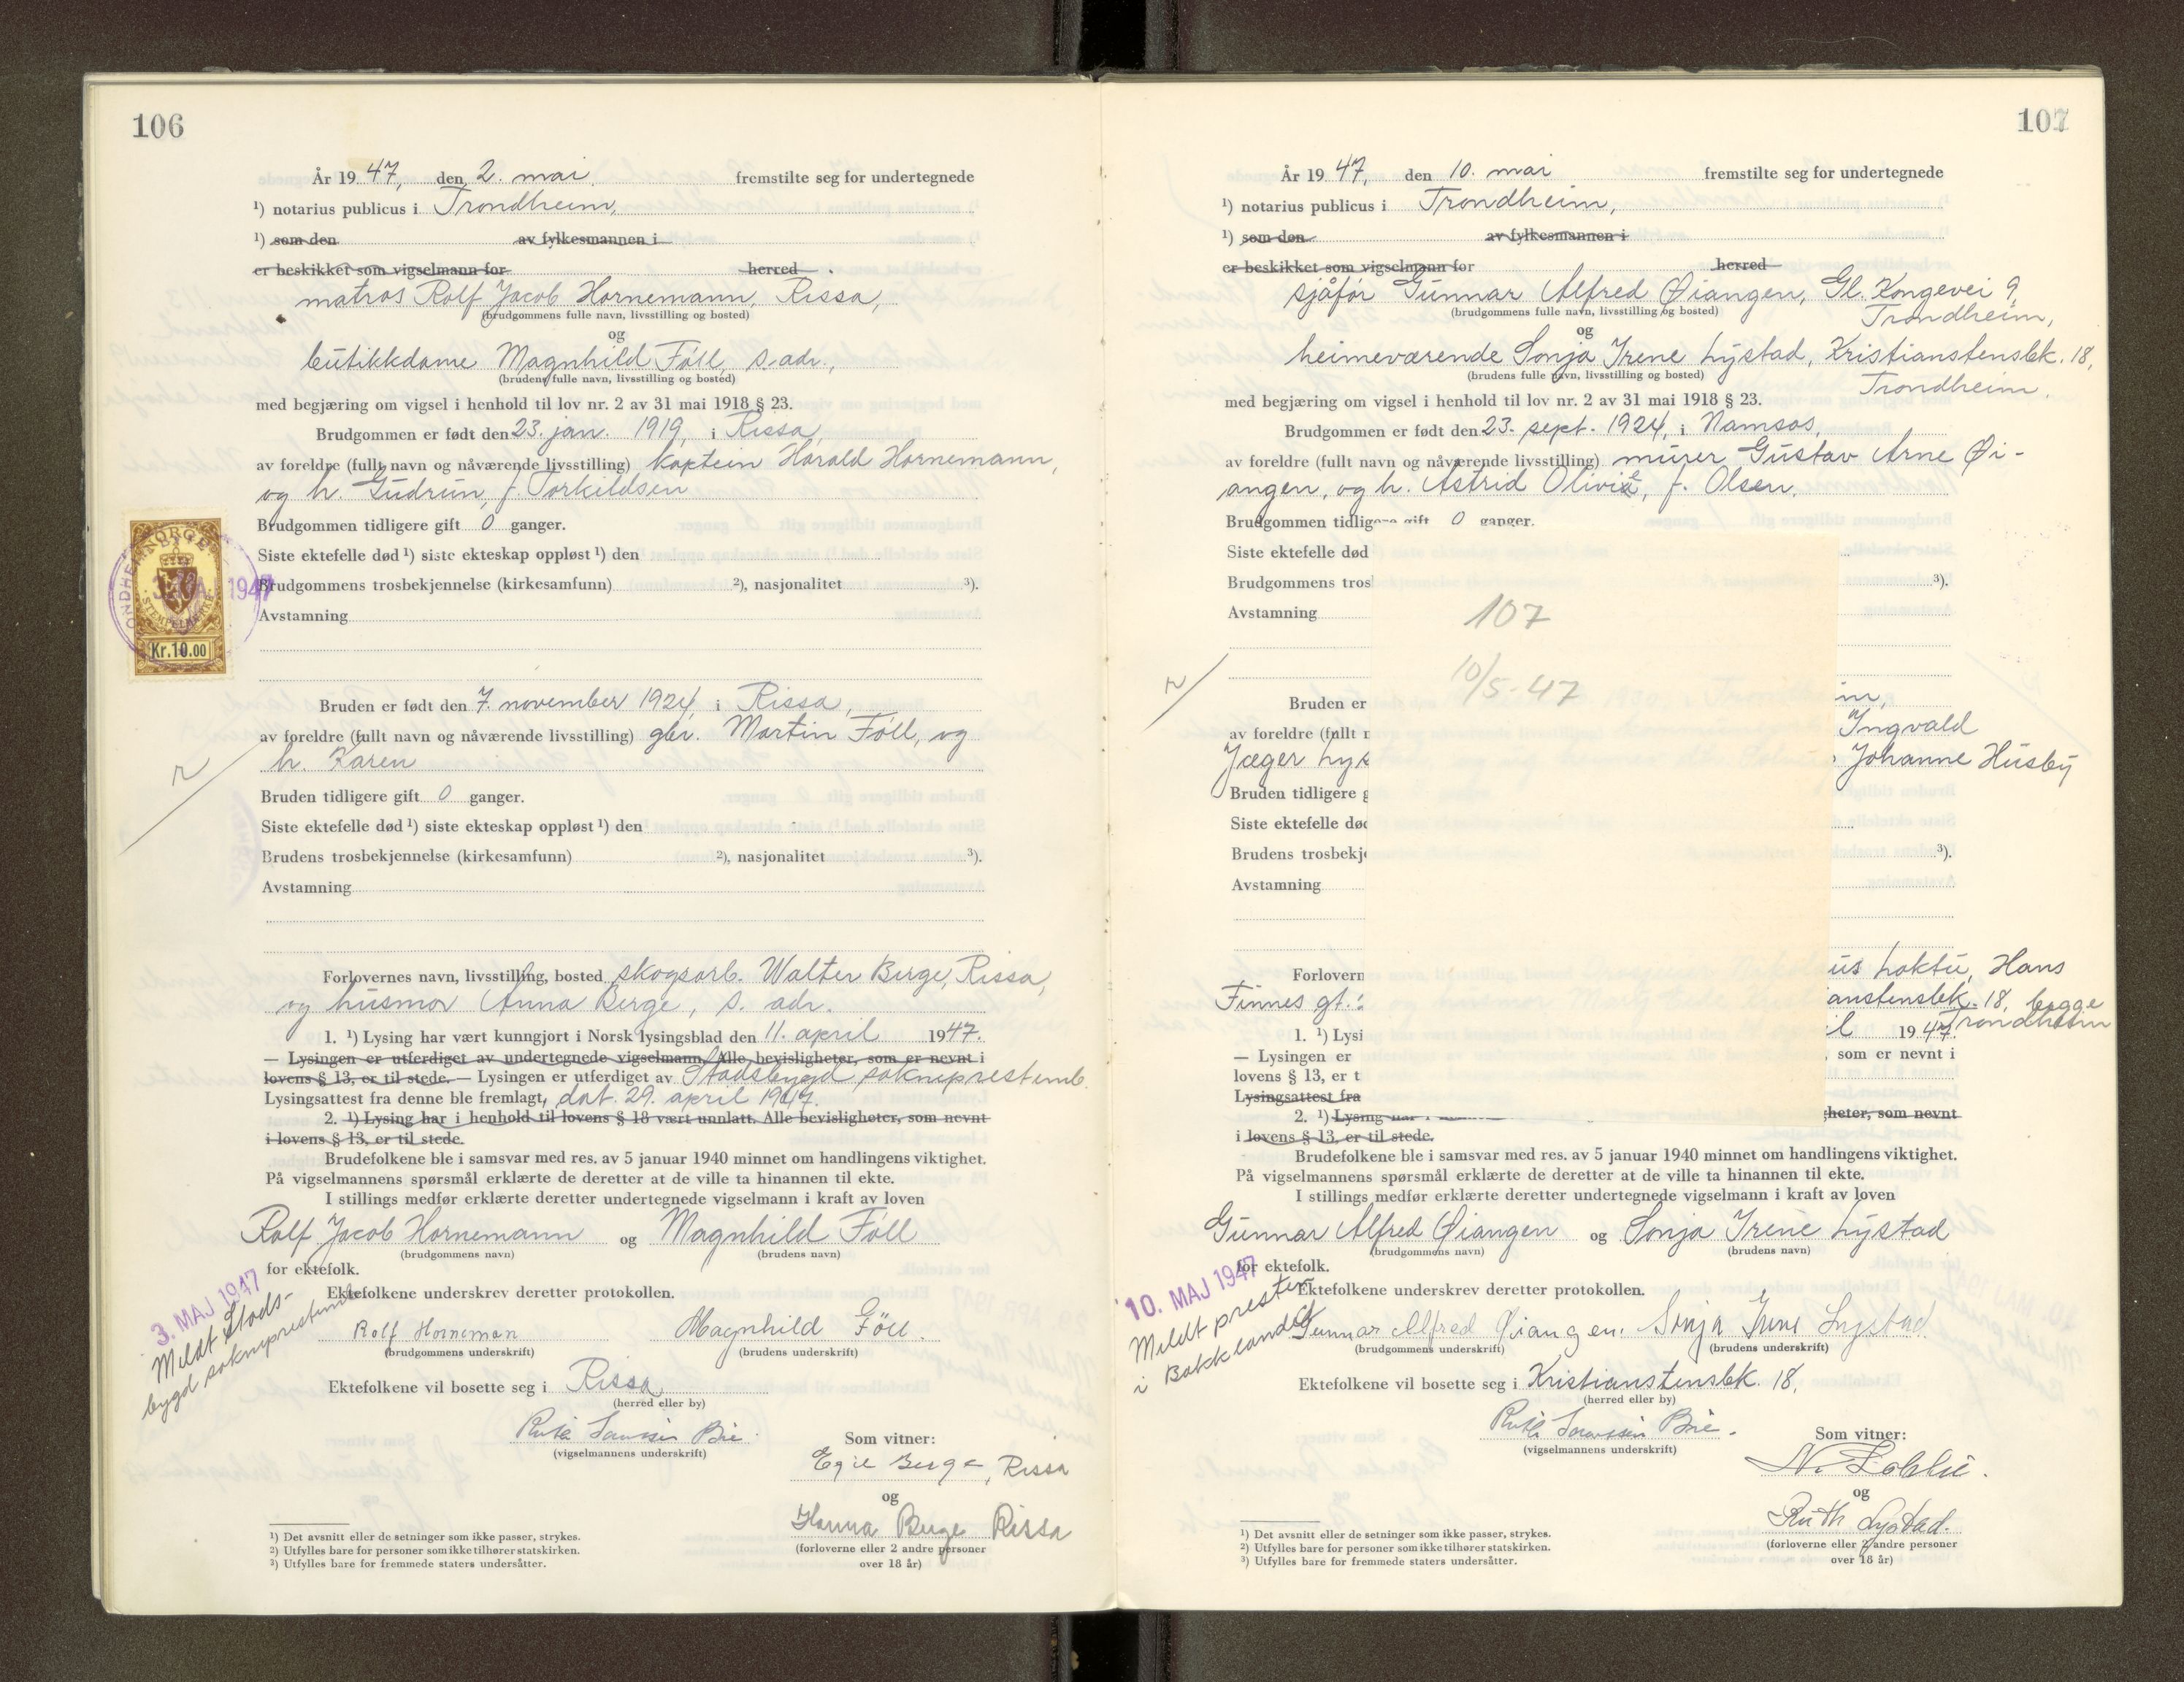 106
År 1947, den 2. mai fremstilte seg for undertegnede
¹) notarius publicus i Trondheim,
¹) som den av fylkesmannen i
er beskikket som vigselmann for herred
matros Rolf Jacob Hornemann, Rissa,
(brudgommens fulle navn, livsstilling og bosted)
og
butikkdame Magnhild Föll, s. adr.,
(brudens fulle navn, livsstilling og bosted)
med begjæring om vigsel i henhold til lov nr. 2 av 31 mai 1918 § 23.
Brudgommen er født den 23. jan. 1919, i Rissa,
av foreldre (fullt navn og nåværende livsstilling) kaptein Harald Hornemann,
og h. Gudrun, f. Torkildsen
Brudgommen tidligere gift 0 ganger.
Siste ektefelle død ¹) siste ekteskap oppløst ¹) den
Brudgommens trosbekjennelse (kirkesamfunn) ²), nasjonalitet ³).
Avstamning
NORGE
STEMPELMERKE
Kr.10.00
Bruden er født den 7. november 1924, i Rissa,
av foreldre (fullt navn og nåværende livsstilling) gbr. Martin Föll, og
h. Karen
Bruden tidligere gift 0 ganger.
Siste ektefelle død ¹) siste ekteskap oppløst ¹) den
Brudens trosbekjennelse (kirkesamfunn) ²), nasjonalitet ³).
Avstamning
Forlovernes navn, livsstilling, bosted skogsarb. Walter Berge, Rissa,
og husmor Anna Berge, s. adr.
1. ¹) Lysing har vært kunngjort i Norsk lysingsblad den 11. april 1947.
— Lysingen er utferdiget av undertegnede vigselmann. Alle bevisligheter, som er nevnt i
lovens § 13, er til stede. — Lysingen er utferdiget av Stadsbygd sokneprestemb.
Lysingsattest fra denne ble fremlagt, dat. 29. april 1947.
2. ¹) Lysing har i henhold til lovens § 18 vært unnlatt. Alle bevisligheter, som nevnt
i lovens § 13, er til stede.
Brudefolkene ble i samsvar med res. av 5 januar 1940 minnet om handlingens viktighet.
På vigselmannens spørsmål erklærte de deretter at de ville ta hinannen til ekte.
I stillings medfør erklærte deretter undertegnede vigselmann i kraft av loven
Rolf Jacob Hornemann og Magnhild Föll
(brudgommens navn) (brudens navn)
for ektefolk.
3. MAJ 1947
Meldt Stads-
bygd sokneprestemb.
Ektefolkene underskrev deretter protokollen.
Rolf Horneman Magnhild Föll.
(brudgommens underskrift) (brudens underskrift)
Ektefolkene vil bosette seg i Rissa
(herred eller by)
(vigselmannens underskrift)
Som vitner:
Egil Berge, Rissa
og
Hanna Berge Rissa
(forloverne eller 2 andre personer
over 18 år)
¹) Det avsnitt eller de setninger som ikke passer, strykes.
²) Utfylles bare for personer som ikke tilhører statskirken.
³) Utfylles bare for fremmede staters undersåtter.
107
År 1947, den 10. mai fremstilte seg for undertegnede
¹) notarius publicus i Trondheim,
¹) som den av fylkesmannen i
er beskikket som vigselmann for herred
sjåfør Gunnar Alfred Øiangen, Gl. Kongevei 9,
Trondheim,
(brudgommens fulle navn, livsstilling og bosted)
og
heimeværende Sonja Irene Lystad, Kristianstensbk. 18,
Trondheim.
(brudens fulle navn, livsstilling og bosted)
med begjæring om vigsel i henhold til lov nr. 2 av 31 mai 1918 § 23.
Brudgommen er født den 23. sept. 1924, i Namsos,
av foreldre (fullt navn og nåværende livsstilling) murer Gustav Arne Øi-
angen, og h. Astrid Olivie, f. Olsen.
Brudgommen tidligere gift 0 ganger.
Siste ektefelle død
Brudgommens tros ³).
Avstamning
107
10/5-47
Bruden er
av foreldre (fullt Ingvald
Jæger Lys Johanne Husby
Bruden tidligere g
Siste ektefelle død
Brudens trosbekj ³).
Avstamning
Forlovern us Loktu, Hans
Finnes gt. anstensbk. 18, begge
Trondheim
1. ¹) Lysi l 1947.
— Lysingen er , som er nevnt i
lovens § 13, er t
Lysingsattest fra
2. ¹) Lysing har gheter, som nevnt
i lovens § 13, er til stede.
Brudefolkene ble i samsvar med res. av 5 januar 1940 minnet om handlingens viktighet.
På vigselmannens spørsmål erklærte de deretter at de ville ta hinannen til ekte.
I stillings medfør erklærte deretter undertegnede vigselmann i kraft av loven
Gunnar Alfred Øiangen og Sonja Irene Lystad
(brudgommens navn) (brudens navn)
for ektefolk.
10. MAJ 1947
Meldt presten
i Bakklandet
Ektefolkene underskrev deretter protokollen.
Gunnar Alfred Øiangen. Sonja Irene Lystad
(brudgommens underskrift) (brudens underskrift)
Ektefolkene vil bosette seg i Kristianstensbk. 18,
(herred eller by)
(vigselmannens underskrift)
Som vitner:
og
Ruth Lystad.
(forloverne eller 2 andre personer
over 18 år)
¹) Det avsnitt eller de setninger som ikke passer, strykes.
²) Utfylles bare for personer som ikke tilhører statskirken.
³) Utfylles bare for fremmede staters undersåtter.